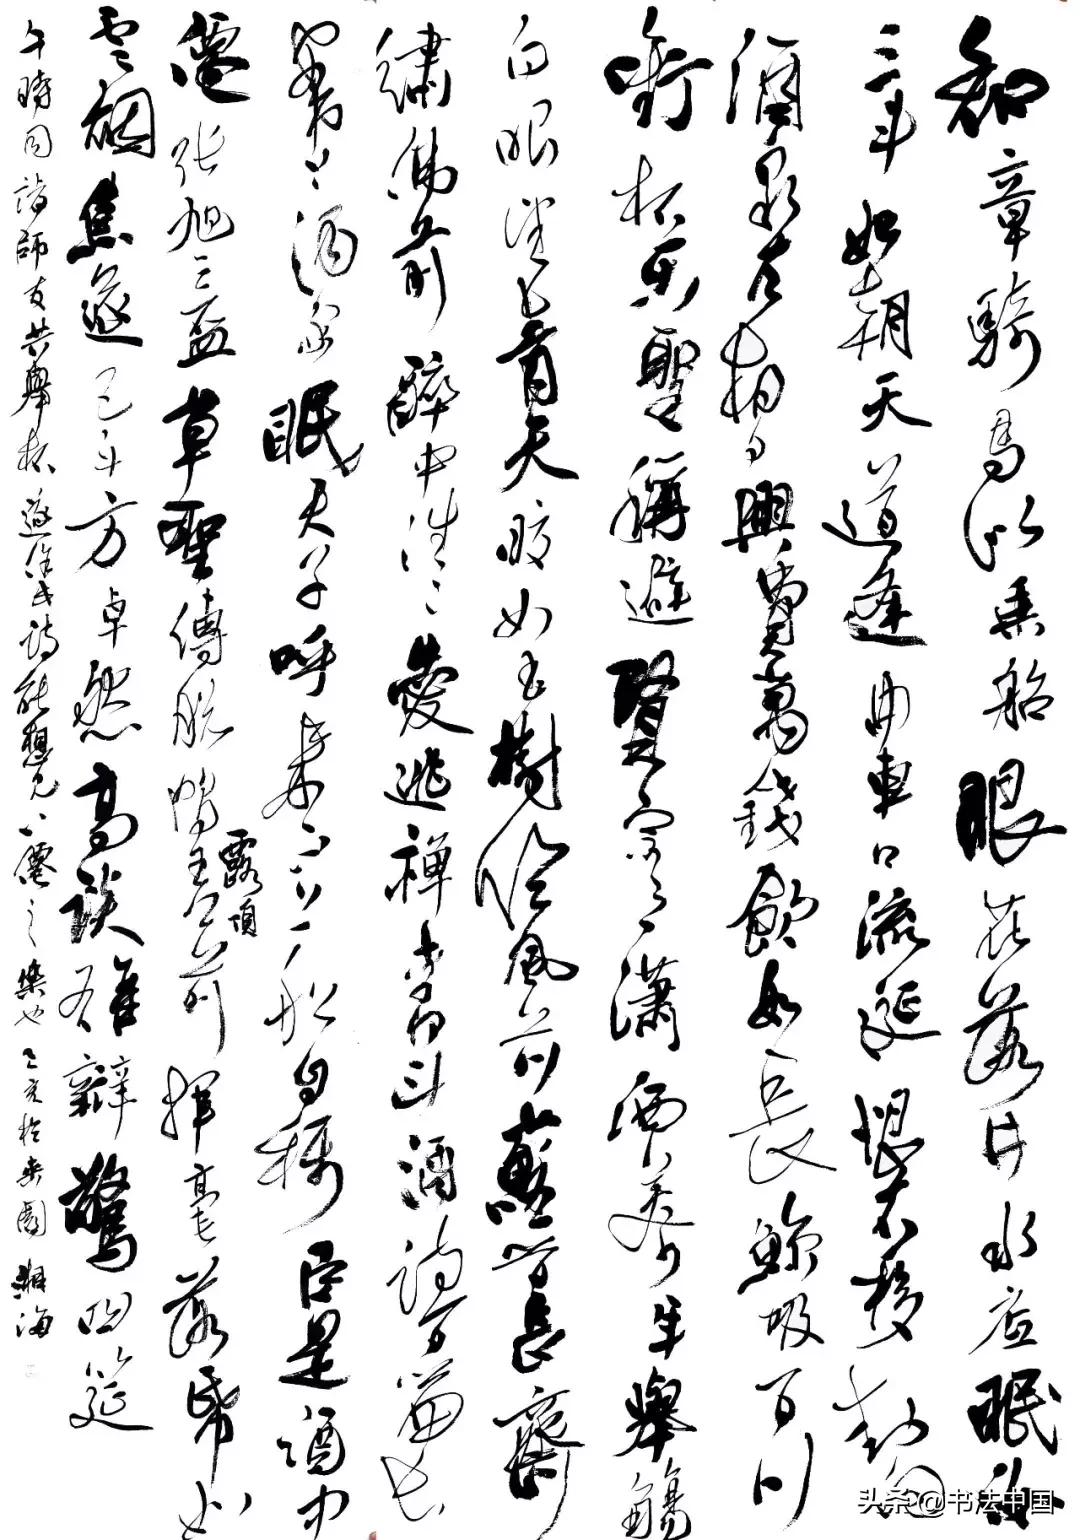 知章騎馬似乘船眼花落井水底眠汝
三斗始朝天道逢曲車口流涎恨不移封向
酒泉左相日興費萬錢飲如長鯨吸百川
銜杯樂聖稱避賢宗之瀟洒美少年舉觴
白眼望青天皎如玉樹臨風前蘇晉長齋
繡佛前醉中往〻愛逃禪李白斗酒詩百篇長
安市上酒家眠天子呼來不上船自稱臣是酒中
僊張旭三盃草聖傳脫帽王公前揮毫落紙如
露頂
雲烟焦遂五斗方卓然高談雄辯驚四筵
午時同諸師友共舉杯 詩能想見八僊之樂也 於 園 湘海
头条@书法中国